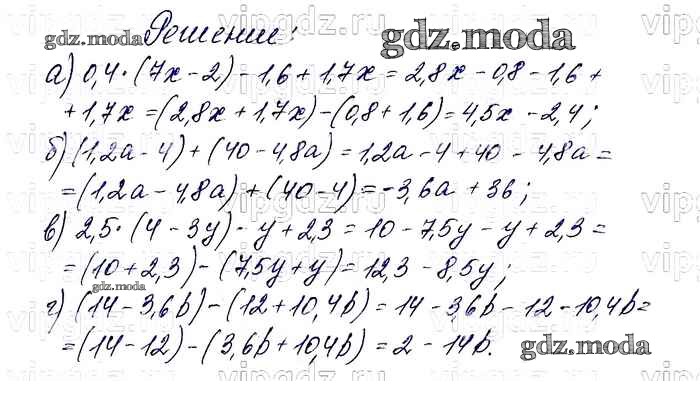 Решение:
gdz.moda
gdz.moda
а) 0,4·(7x-2)-1,6+1,7x = 2,8x-0,8-1,6+
+1,7x = (2,8x+1,7x)-(0,8+1,6) = 4,5x-2,4;
б) (1,2a-4)+(40-4,8a) = 1,2a-4+40-4,8a =
= (1,2a-4,8a)+(40-4) = -3,6a+36;
в) 2,5·(4-3y)-y+2,3 = 10-7,5y-y+2,3 =
= (10+2,3)-(7,5y+y) = 12,3-8,5y;
gdz.moda
г) (14-3,6b)-(12+10,4b) = 14-3,6b-12-10,4b =
= (14-12)-(3,6b+10,4b) = 2-14b.
gdz.moda